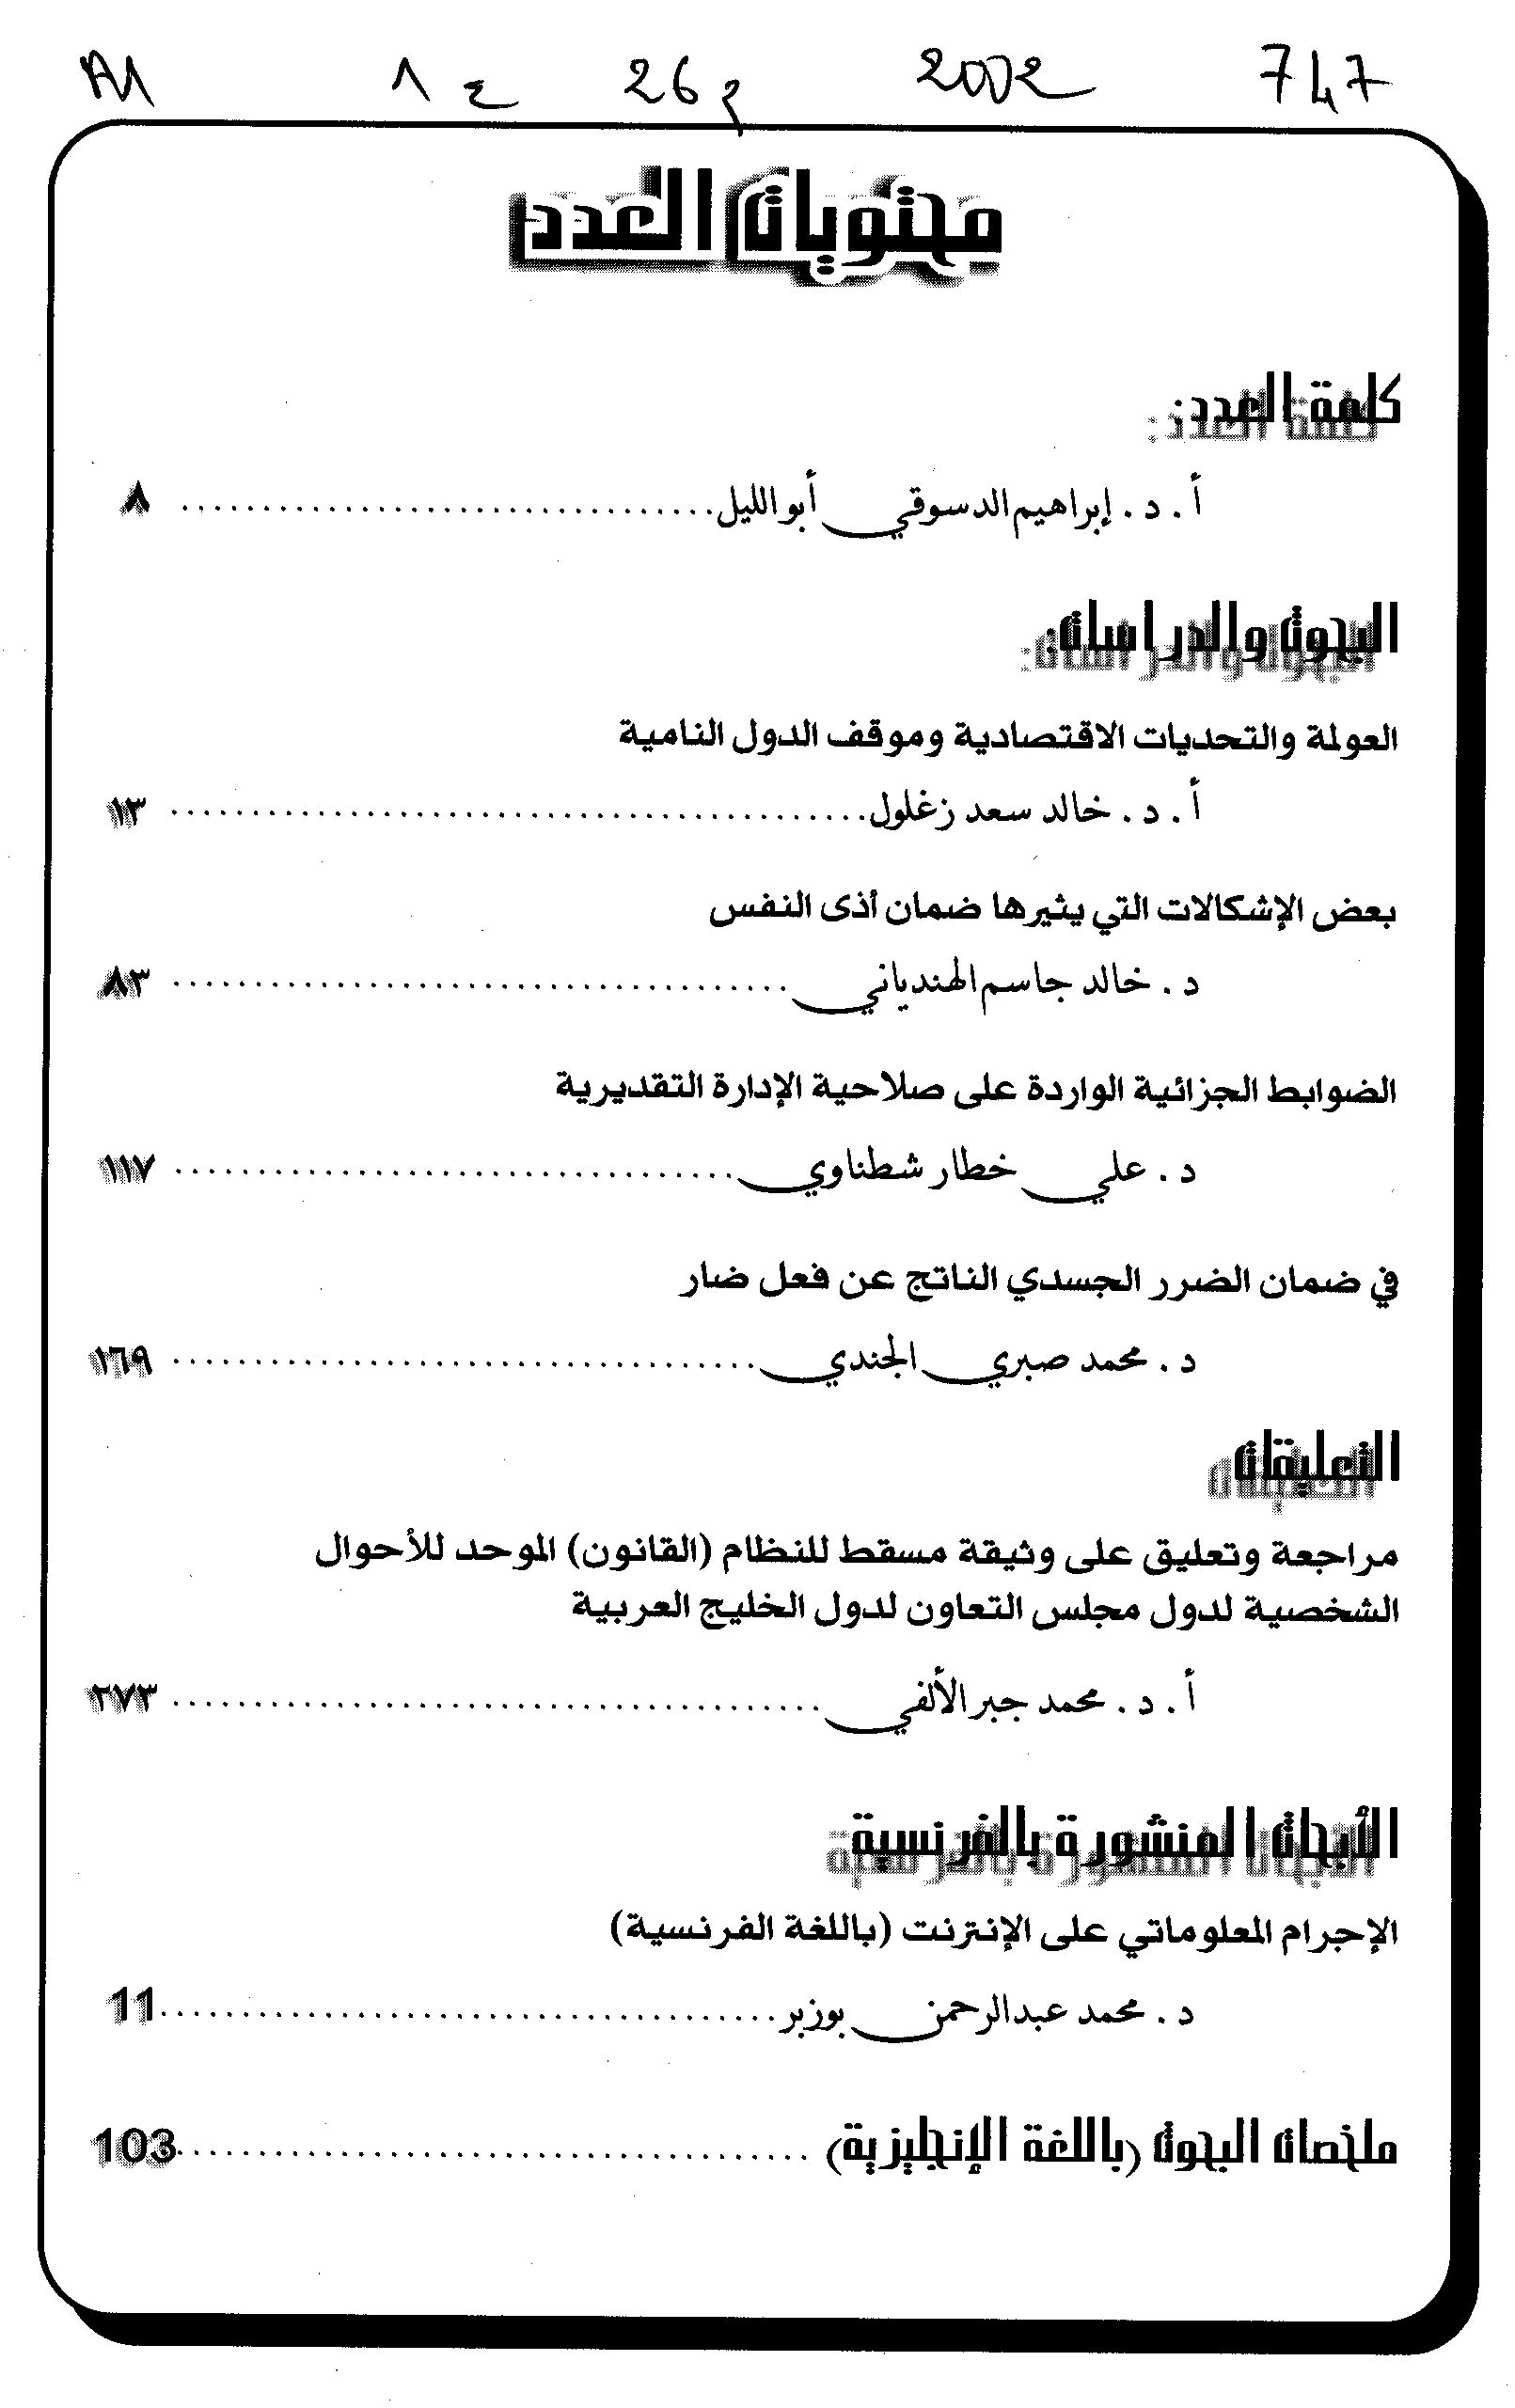 747 2002 26 م 1 ع A1
محتويات العدد
كلمة العدد:
أ . د . إبراهيم الدسوقي أبو الليل.................................. ٨
البحوث والدراسات:
العولمة والتحديات الاقتصادية وموقف الدول النامية
أ . د . خالد سعد زغلول............................................ ١٣
بعض الإشكالات التي يثيرها ضمان أذى النفس
د . خالد جاسم الهندياني....................................... ٨٣
الضوابط الجزائية الواردة على صلاحية الإدارة التقديرية
د . علي خطار شطناوي.................................... ١١٧
في ضمان الضرر الجسدي الناتج عن فعل ضار
د . محمد صبري الجندي..................................... ١٦٩
التعليقات
مراجعة وتعليق على وثيقة مسقط للنظام (القانون) الموحد للأحوال
الشخصية لدول مجلس التعاون لدول الخليج العربية
أ . د . محمد جبر الألفي......................................... ٢٧٣
الأبحاث المنشورة بالفرنسية
الإجرام المعلوماتي على الإنترنت (باللغة الفرنسية)
د . محمد عبدالرحمن بوزبر.......................................11
ملخصات البحوث (باللغة الإنجليزية) ........................................103